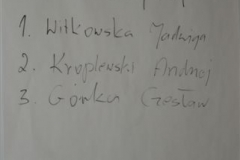 1. Witkowska Jadwiga
2. Kryplewski Andrzej
3. Górka Czesław